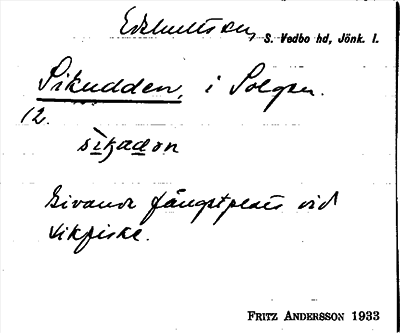 Edshults sn, S. Vedbo hd, Jönk. l.
Sikudden, i Solgen.
12.
sìkadən
Givande fångstplats vid
sikfiske.
FRITZ ANDERSSON 1933